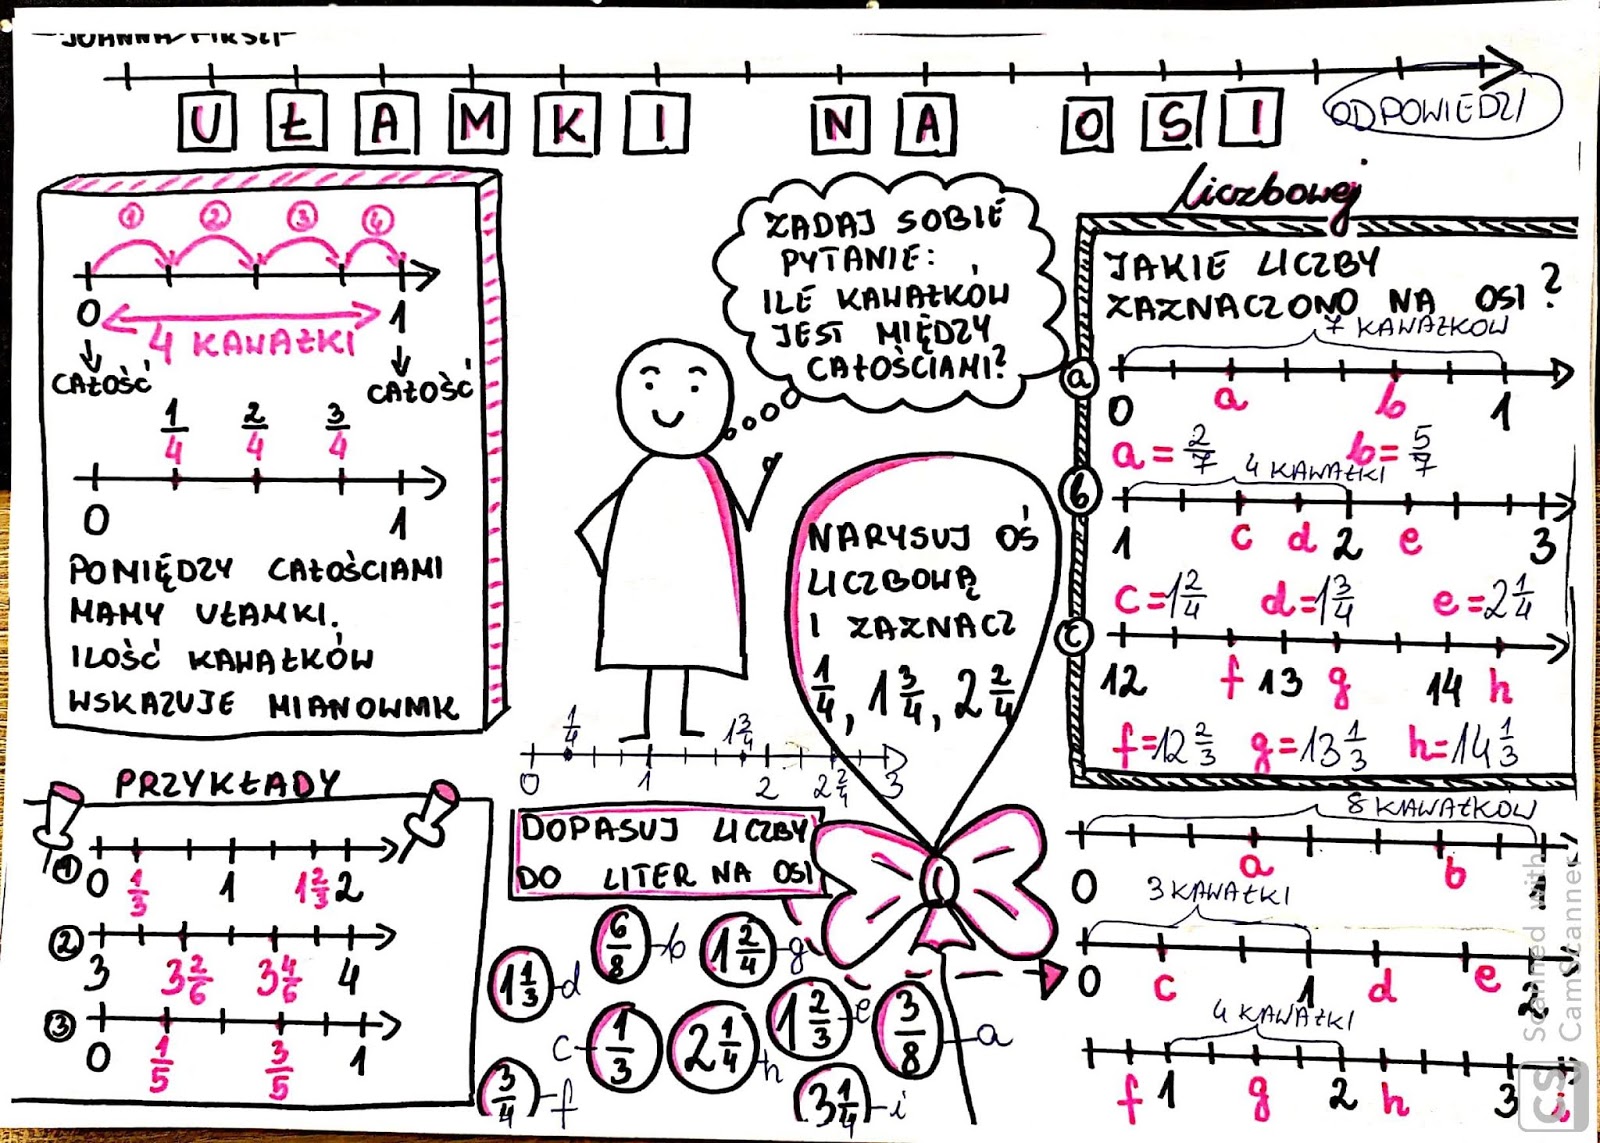 UŁAMKI NA OSI
liczbowej
ODPOWIEDZI
1 2 3 4
0 1
4 KAWAŁKI
CAŁOŚĆ CAŁOŚĆ
1/4 2/4 3/4
0 1
POMIĘDZY CAŁOŚCIAMI
MAMY UŁAMKI.
ILOŚĆ KAWAŁKÓW
WSKAZUJE MIANOWNIK
ZADAJ SOBIE
PYTANIE:
ILE KAWAŁKÓW
JEST MIĘDZY
CAŁOŚCIAMI?
NARYSUJ OŚ
LICZBOWĄ
I ZAZNACZ
1/4, 1 3/4, 2 2/4
1/4 1 3/4
0 1 2 2 2/4 3
JAKIE LICZBY
ZAZNACZONO NA OSI?
7 KAWAŁKÓW
a
0 a b 1
a = 2/7 b = 5/7
4 KAWAŁKI
b
1 c d 2 e 3
c = 1 2/4 d = 1 3/4 e = 2 1/4
c
12 f 13 g 14 h
f = 12 2/3 g = 13 1/3 h = 14 1/3
PRZYKŁADY
1
0 1/3 1 1 2/3 2
2
3 3 2/6 3 4/6 4
3
0 1/5 3/5 1
DOPASUJ LICZBY
DO LITER NA OSI
6/8 - b
1 2/4 - g
1 1/3 - d
1 2/3 - e
3/8 - a
c - 1/3
2 1/4 - h
3/4 - f
3 1/4 - i
8 KAWAŁKÓW
0 a b 1
3 KAWAŁKI
0 c 1 d e 2
4 KAWAŁKI
f 1 g 2 h 3 i
CS
Scanned with
CamScanner